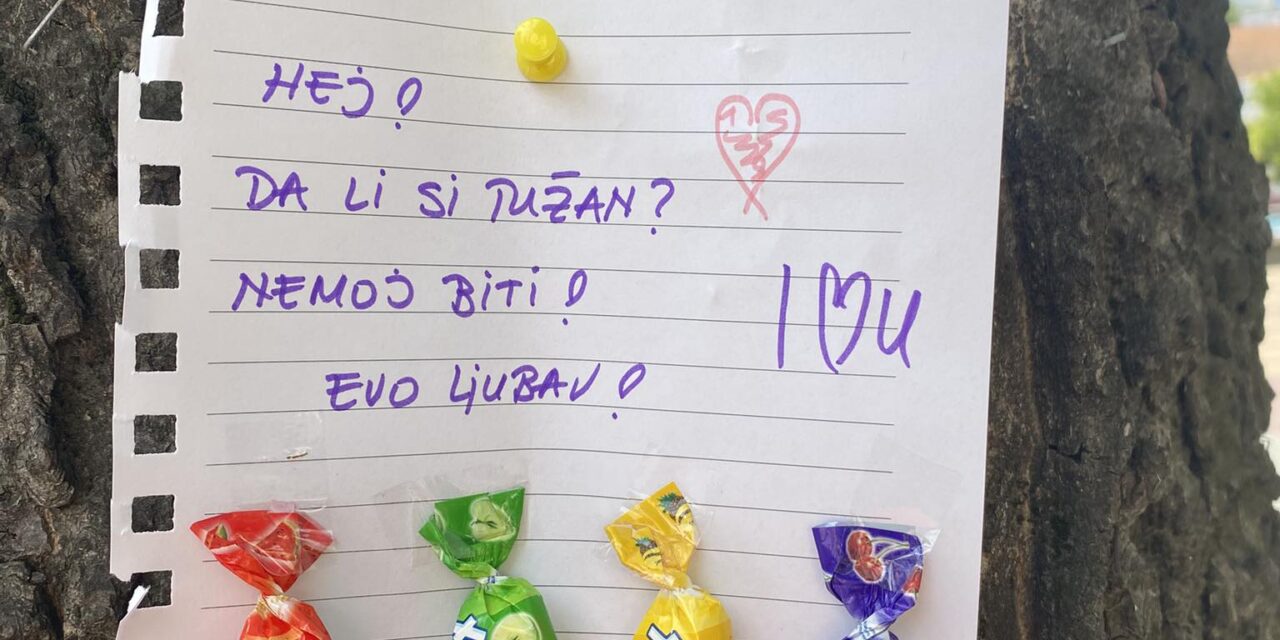 HEJ!
DA LI SI TUŽAN?
NEMOJ BITI!
I ♥ U
EVO LJUBAV!